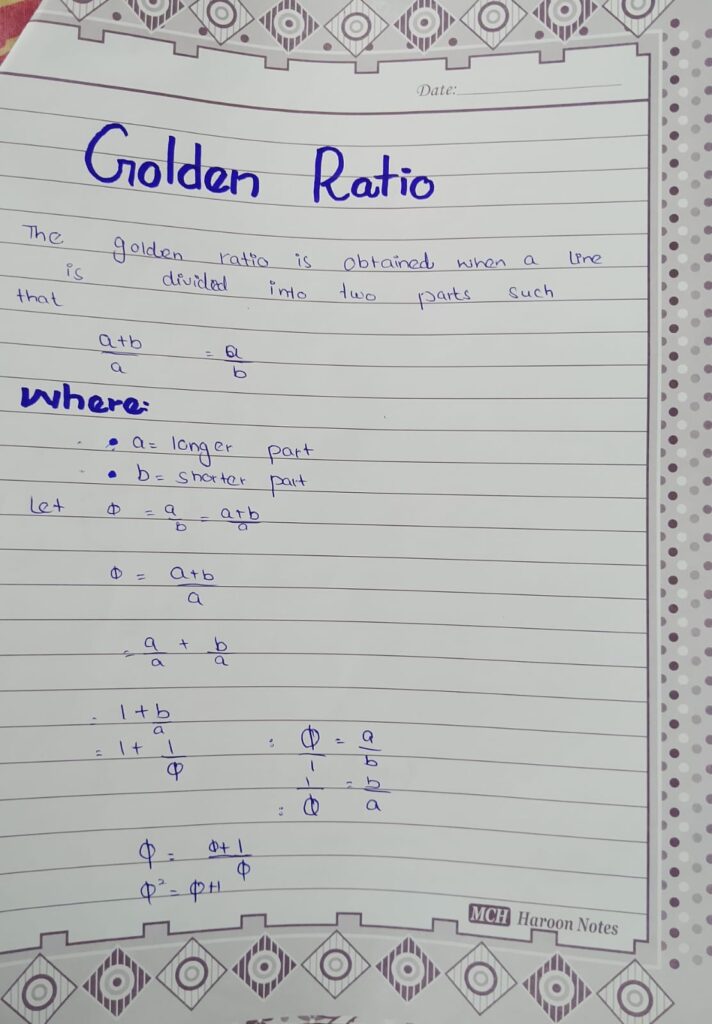 Date:
Golden Ratio
The golden ratio is obtained when a line
is divided into two parts such
that
a+b/a = a/b
Where:
• a = longer part
• b = shorter part
Let Φ = a/b = a+b/a
Φ = a+b/a
= a/a + b/a
= 1+b/a
= 1+ 1/Φ : Φ/1 = a/b
: 1/Φ = b/a
Φ = Φ+1/Φ
Φ² = Φ+1
MCH Haroon Notes